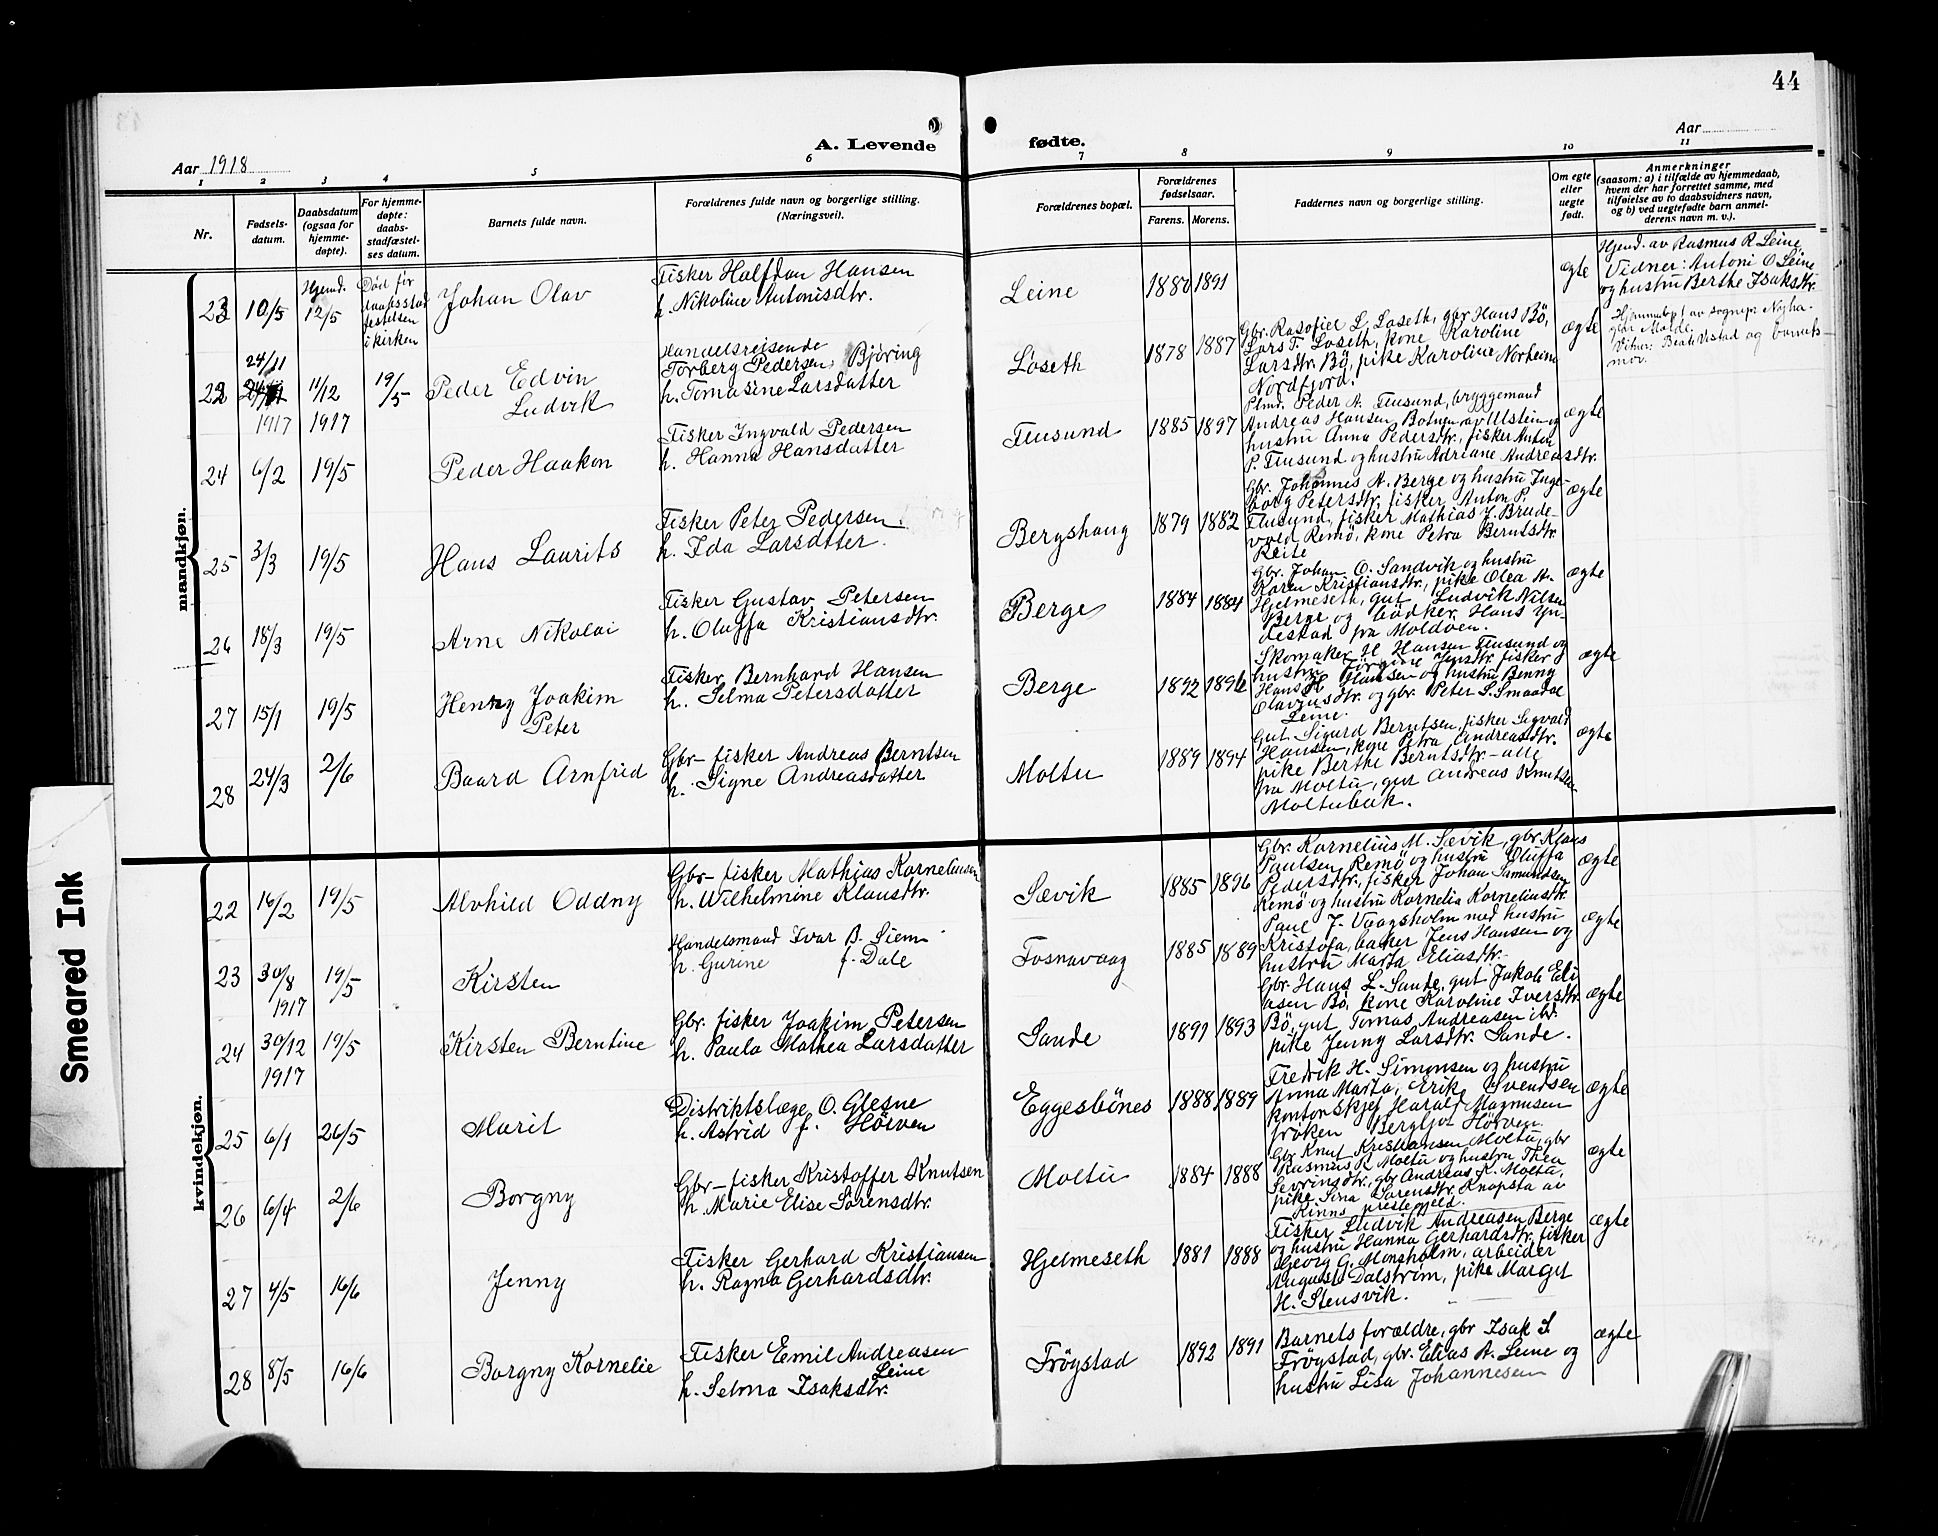 44
A. Levende fødte.
Aar 1918
Aar
1 2 3 4 5 6 7 8 9 10 11
Nr.
Fødsels-
datum.
Daabsdatum
(ogsaa for
hjemme-
døpte).
For hjemme-
døpte:
daabs-
stadfæstel-
ses datum.
Barnets fulde navn.
Forældrenes fulde navn og borgerlige stilling.
(Næringsvei).
Forældrenes bopæl.
Forældrenes
fødselsaar.
Farens. Morens.
Faddernes navn og borgerlige stilling.
Om egte
eller
uegte
født.
Anmerkninger
(saasom: a) i tilfælde av hjemmedaab,
hvem der har forrettet samme, med
tilføielse av to daabsvidners navn,
og b) ved uegtefødte barn anmel-
derens navn m. v.).
mandkjøn.
23 10/5
Hjemd.
12/5
Død før
daabsstad
festelsen
i kirken
Johan Olav
Fisker Halfdan Hansen
h. Nikoline Antonisdtr.
Leine
1880 1891
ægte
Hjemd. av Rasmus R Leine
Vidner: Antoni O Leine
og hustru Berthe Isaksdtr.
22
24/11
1917
11/12
1917
19/5
Peder Edvin
Ludvik
Handelsreisende
Torberg Pedersen Bjøring
h. Tomasine Larsdatter
Løseth
1878 1887
Gbr. Rasofiel L. Løseth, gbr Hans Bö,
Lars T. Løseth, kone Karoline
Larsdtr. Bö, pike Karoline Norheim
Nordfjord.
ægte
24 6/2 19/5
Peder Haakon
Fisker Ingvald Pedersen
h. Hanna Hansdatter
Flusund
1885 1897
Plmd. Peder A. Flusund, bryggemand
Andreas Hansen Botnen av Ulstein og
hustru Anna Pedersdtr., fisker Anton
P. Flusund og hustru Adriane Andreasdtr.
ægte
25 3/3 19/5
Hans Laurits
Fisker Peter Pedersen
h. Ida Larsdatter
Bergshaug
1879 1882
Gbr. Johannes A. Berge og hustru Inge-
borg Petersdtr., fisker Anton P.
Flusund, fisker Mathias J. Brude-
vold Remö, kone Petra Berntsdtr.
Reite
ægte
26 18/3 19/5
Arne Nikolai
Fisker Gustav Petersen
h. Oluffa Kristiansdtr.
Berge
1884 1884
Gbr. Johan O. Sandvik og hustru
Karen Kristiansdtr., pike Olea A.
Hjelmeseth, gut Ludvik Nilsen
Berge og bödker Hans Yn-
destad fra Moldöen.
ægte
27 15/1 19/5
Henry Joakim
Peter
Fisker Bernhard Hansen
h. Selma Petersdatter
Berge
1892 1896
Skomaker H Hansen Flusund og
hustru Jörgine Jensdtr. fisker
Hans H Hansen og hustru Benny
Olavsusdtr. og gbr. Peter S. Smaadal
Leine.
ægte
28 24/3 2/6
Baard Arnfred
Gbr-fisker Andreas Berntsen
h. Signe Andreasdatter
Moltu
1889 1894
Gut Sigurd Berntsen, fisker Sigvald
Hansen, kone Petra Andreasdtr.
pike Berthe Berntsdtr - alle
fra Moltu, gut Andreas Knutsen
Moltubak.
ægte
kvindekjøn.
22 16/2 19/5
Alvhild Oddny
Gbr-fisker Mathias Korneliusen
h. Wilhelmine Klausdtr.
Sævik
1885 1896
Gbr. Kornelius M. Sævik, gbr Klaus
Paulsen Remö og hustru Oluffa
Pedersdtr., fisker Johan Samundsen
Remö og hustru Kornelia Korneliusdtr.
ægte
23
30/8
1917
19/5
Kirsten
Handelsmand Ivar B. Siem
h. Gurine f. Dale
Fosnavaag
1885 1889
Paul J. Vaagsholm med hustru
Kristofa, baker Jens Hansen og
hustru Marta Eliasdtr.
ægte
24
30/12
1917
19/5
Kirsten Berntine
Gbr. fisker Joakim Petersen
h. Paula Mathea Larsdatter
Sande
1891 1893
Gbr. Hans L. Sande, gut Jakob Eli
asen Bö, kone Karoline Iversdtr.
Bö, gut Tomas Andreasen ib.
pike Jenny Larsdtr. Sande.
ægte
25 6/1 26/5
Marit
Distriktslæge O. Glesne
h. Astrid f. Hörven
Eggesbönes
1888 1889
Fredrik H. Simonsen og hustru
Anna Marta, Erik Svendsen
kontorskjef Harald Magnusen
fröken Bergljot Hörven.
ægte
26 6/4 2/6
Borgny
Gbr-fisker Kristoffer Knutsen
h. Marie Elise Sörensdtr.
Moltu
1884 1888
Gbr Knut Kristiansen Moltu, gbr
Rasmus K Moltu og hustru Thea
Sevrinsdtr., gbr Andreas K. Moltu,
pike Sina Sorensdtr. Knapsta av
Kinns prestegjeld.
ægte
27 4/5 16/6
Jenny
Fisker Gerhard Kristiansen
h. Ragna Gerhardsdtr.
Hjelmeseth
1881 1888
Fisker Ludvik Andreasen Berge
og hustru Hanna Gerhardsdtr. fisker
Georg G. Monsholm, arbeider
August Dalström, pike Margit
H. Stensvik.
ægte
28 8/5 16/6
Borgny Kornelie
Fisker Emil Andreasen
Leine
h. Selma Isaksdtr.
Fröystad
1892 1891
Barnets forældre, gbr Isak S.
Fröystad, gbr. Elias A. Leine og
hustru Lisa Johannesen
ægte
Smeared Ink